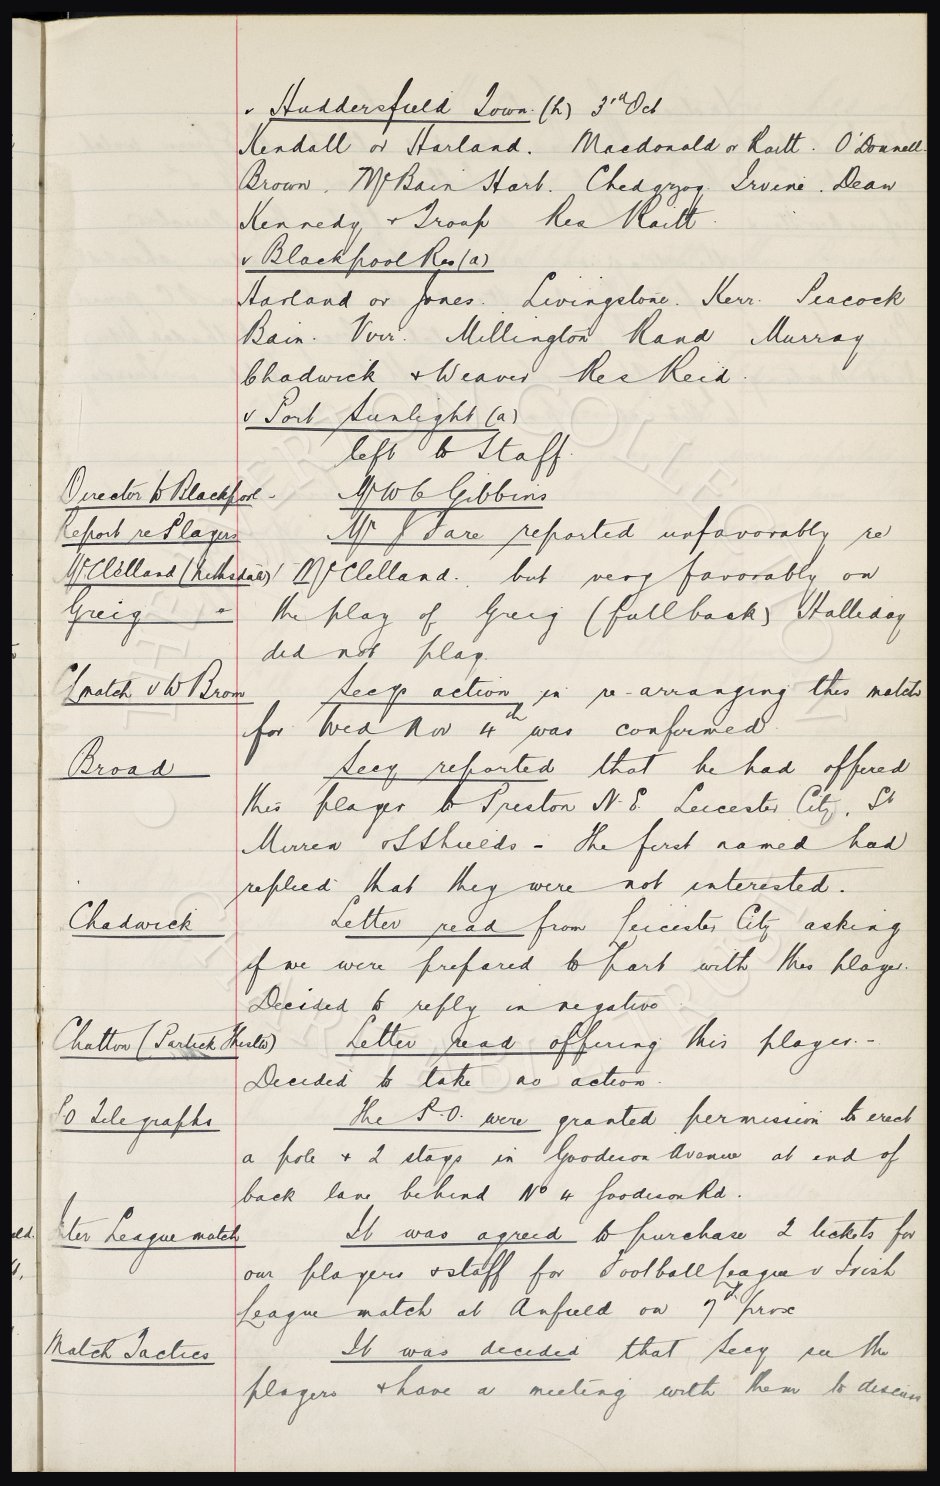 v Huddersfield Town (h) 3rd Oct
Kendall or Harland. Macdonald or Raitt. O'Donnell.
Brown. McBain Hart. Chedgzoy. Irvine. Dean
Kennedy & Troup Res Raitt.
v Blackpool Res (a)
Harland or Jones. Livingstone. Kerr. Peacock
Bain. Virr. Millington Rand Murray
Chadwick & Weaver Res Reid.
v Port Sunlight (a)
left to Staff.
Director to Blackpool - Mr W C Gibbins
Report re Players Mr J Fare reported unfavorably re
McClelland (Nithsdale) McClelland. but very favorably on
Greig " the play of Greig (full back) Halliday
did not play.
CL match v W Brom Secys action in re-arranging this match
for Wed Nov 4th was confirmed
Broad Secy reported that he had offered
this player to Preston N.E. Leicester City, St
Mirren & S Shields - the first named had
replied that they were not interested.
Chadwick Letter read from Leicester City asking
if we were prepared to part with this player.
Decided to reply in negative
Chatton (Partick Thistle) Letter read offering this player. -
Decided to take no action.
PO Telegraphs The P.O. were granted permission to erect
a pole & 2 stays in Goodison Avenue at end of
back lane behind No 4 Goodison Rd.
Inter League match It was agreed to purchase 2 tickets for
our players & staff for Football League v Irish
League match at Anfield on 7th prox
Match Tactics It was decided that Secy see the
players & have a meeting with them to discuss